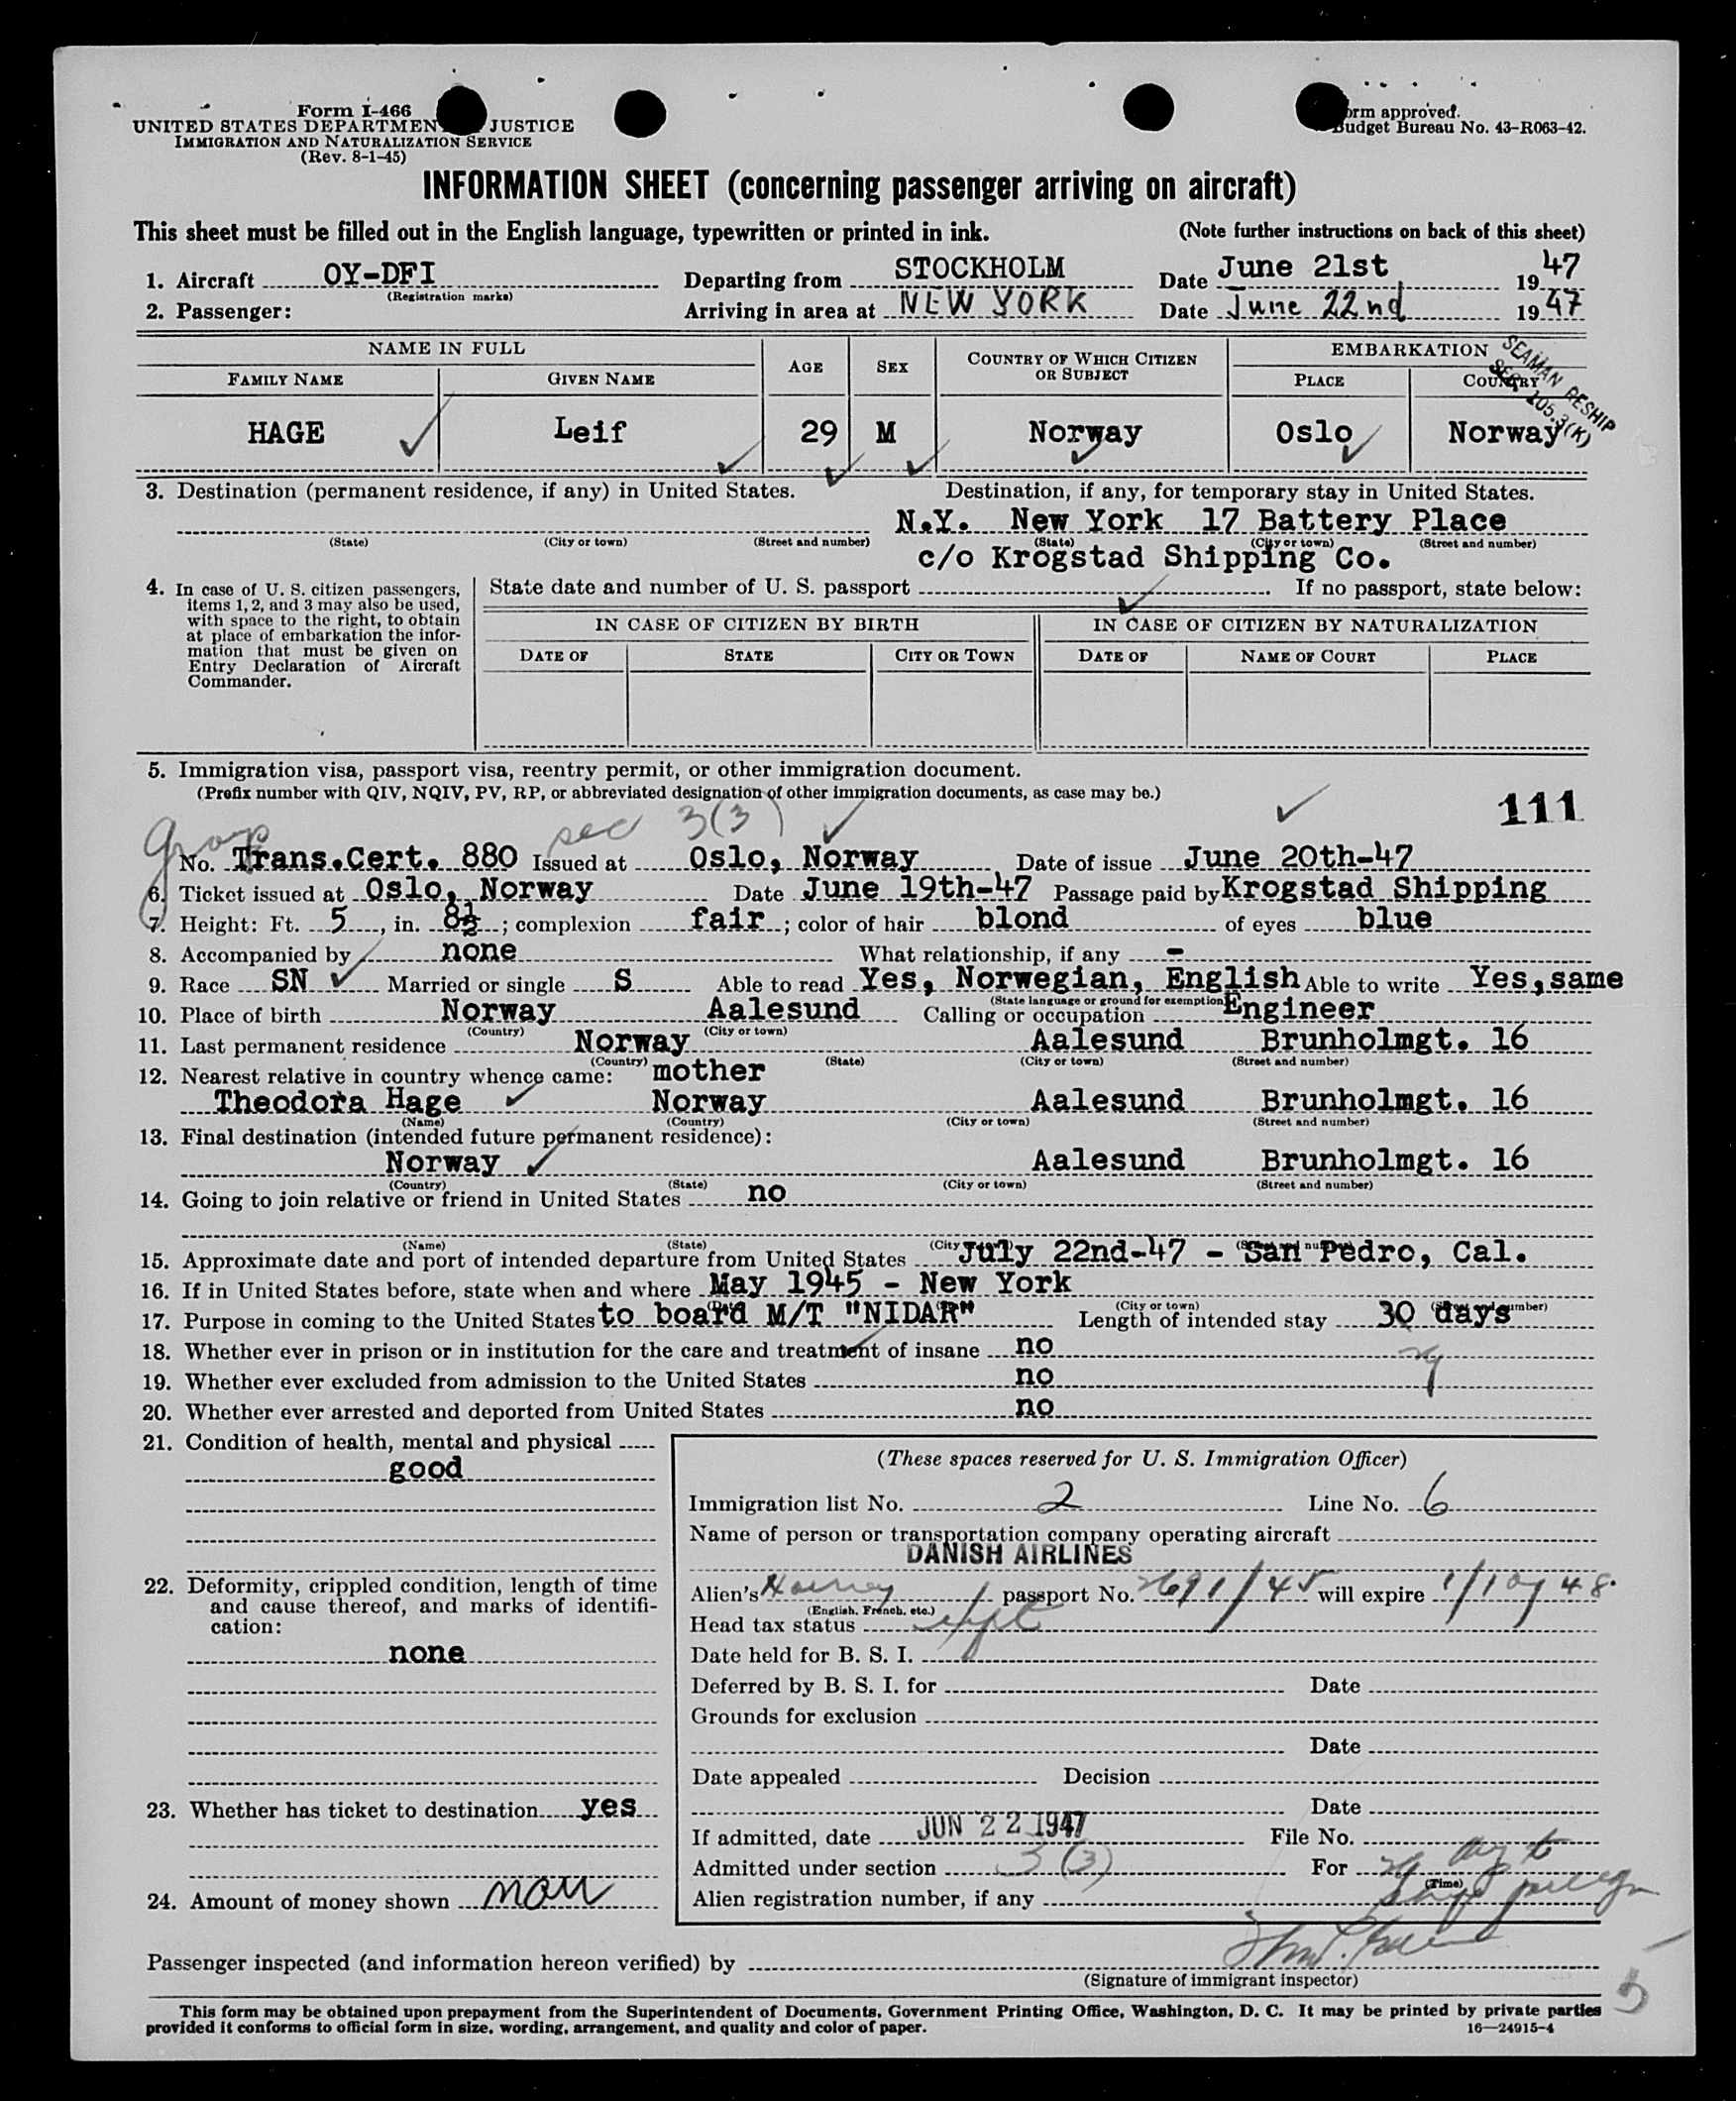 Form I-466
UNITED STATES DEPARTMEN JUSTICE
IMMIGRATION AND NATURALIZATION SERVICE
(Rev. 8-1-45)
orm approved.
Budget Bureau No. 43-R063-42.
INFORMATION SHEET (concerning passenger arriving on aircraft)
This sheet must be filled out in the English language, typewritten or printed in ink. (Note further instructions on back of this sheet)
1. Aircraft OY-DFI Departing from STOCKHOLM Date June 21st 1947
(Registration marks)
2. Passenger: Arriving in area at NEW YORK Date June 22nd 1947
NAME IN FULL AGE SEX COUNTRY OF WHICH CITIZEN OR SUBJECT EMBARKATION
FAMILY NAME GIVEN NAME PLACE COUNTRY
SEAMAN RESHIP
SEC. 105.3(K)
HAGE Leif 29 M Norway Oslo Norway
3. Destination (permanent residence, if any) in United States. Destination, if any, for temporary stay in United States.
N.Y. New York 17 Battery Place
(State) (City or town) (Street and number) (State) (City or town) (Street and number)
c/o Krogstad Shipping Co.
4. In case of U. S. citizen passengers, items 1, 2, and 3 may also be used, with space to the right, to obtain at place of embarkation the information that must be given on Entry Declaration of Aircraft Commander.
State date and number of U. S. passport If no passport, state below:
IN CASE OF CITIZEN BY BIRTH IN CASE OF CITIZEN BY NATURALIZATION
DATE OF STATE CITY OR TOWN DATE OF NAME OF COURT PLACE
5. Immigration visa, passport visa, reentry permit, or other immigration document.
(Prefix number with QIV, NQIV, PV, RP, or abbreviated designation of other immigration documents, as case may be.)
111
sec 3(3)
No. Trans.Cert. 880 Issued at Oslo, Norway Date of issue June 20th-47
6. Ticket issued at Oslo, Norway Date June 19th-47 Passage paid by Krogstad Shipping
7. Height: Ft. 5, in. 8½; complexion fair; color of hair blond of eyes blue
8. Accompanied by none What relationship, if any -
9. Race SN Married or single S Able to read Yes, Norwegian, English Able to write Yes,same
(State language or ground for exemption)
10. Place of birth Norway Aalesund Calling or occupation Engineer
(Country) (City or town)
11. Last permanent residence Norway Aalesund Brunholmgt. 16
(Country) (State) (City or town) (Street and number)
12. Nearest relative in country whence came: mother
Theodora Hage Norway Aalesund Brunholmgt. 16
(Name) (Country) (City or town) (Street and number)
13. Final destination (intended future permanent residence):
Norway Aalesund Brunholmgt. 16
(Country) (State) (City or town) (Street and number)
14. Going to join relative or friend in United States no
(Name) (State)
15. Approximate date and port of intended departure from United States July 22nd-47 - San Pedro, Cal.
16. If in United States before, state when and where May 1945 - New York
(City or town)
17. Purpose in coming to the United States to board M/T "NIDAR" Length of intended stay 30 days
18. Whether ever in prison or in institution for the care and treatment of insane no
19. Whether ever excluded from admission to the United States no
20. Whether ever arrested and deported from United States no
21. Condition of health, mental and physical
good
22. Deformity, crippled condition, length of time and cause thereof, and marks of identification:
none
23. Whether has ticket to destination yes
24. Amount of money shown
(These spaces reserved for U. S. Immigration Officer)
Immigration list No. 2 Line No. 6
Name of person or transportation company operating aircraft
DANISH AIRLINES
Alien's passport No. will expire
(English, French, etc.)
Head tax status
Date held for B. S. I.
Deferred by B. S. I. for Date
Grounds for exclusion
Date
Date appealed Decision
Date
If admitted, date JUN 22 1947 File No.
Admitted under section 3(3) For
(Time)
Alien registration number, if any
Passenger inspected (and information hereon verified) by
(Signature of immigrant inspector)
This form may be obtained upon prepayment from the Superintendent of Documents, Government Printing Office, Washington, D. C. It may be printed by private parties
provided it conforms to official form in size, wording, arrangement, and quality and color of paper.
16—24915-4